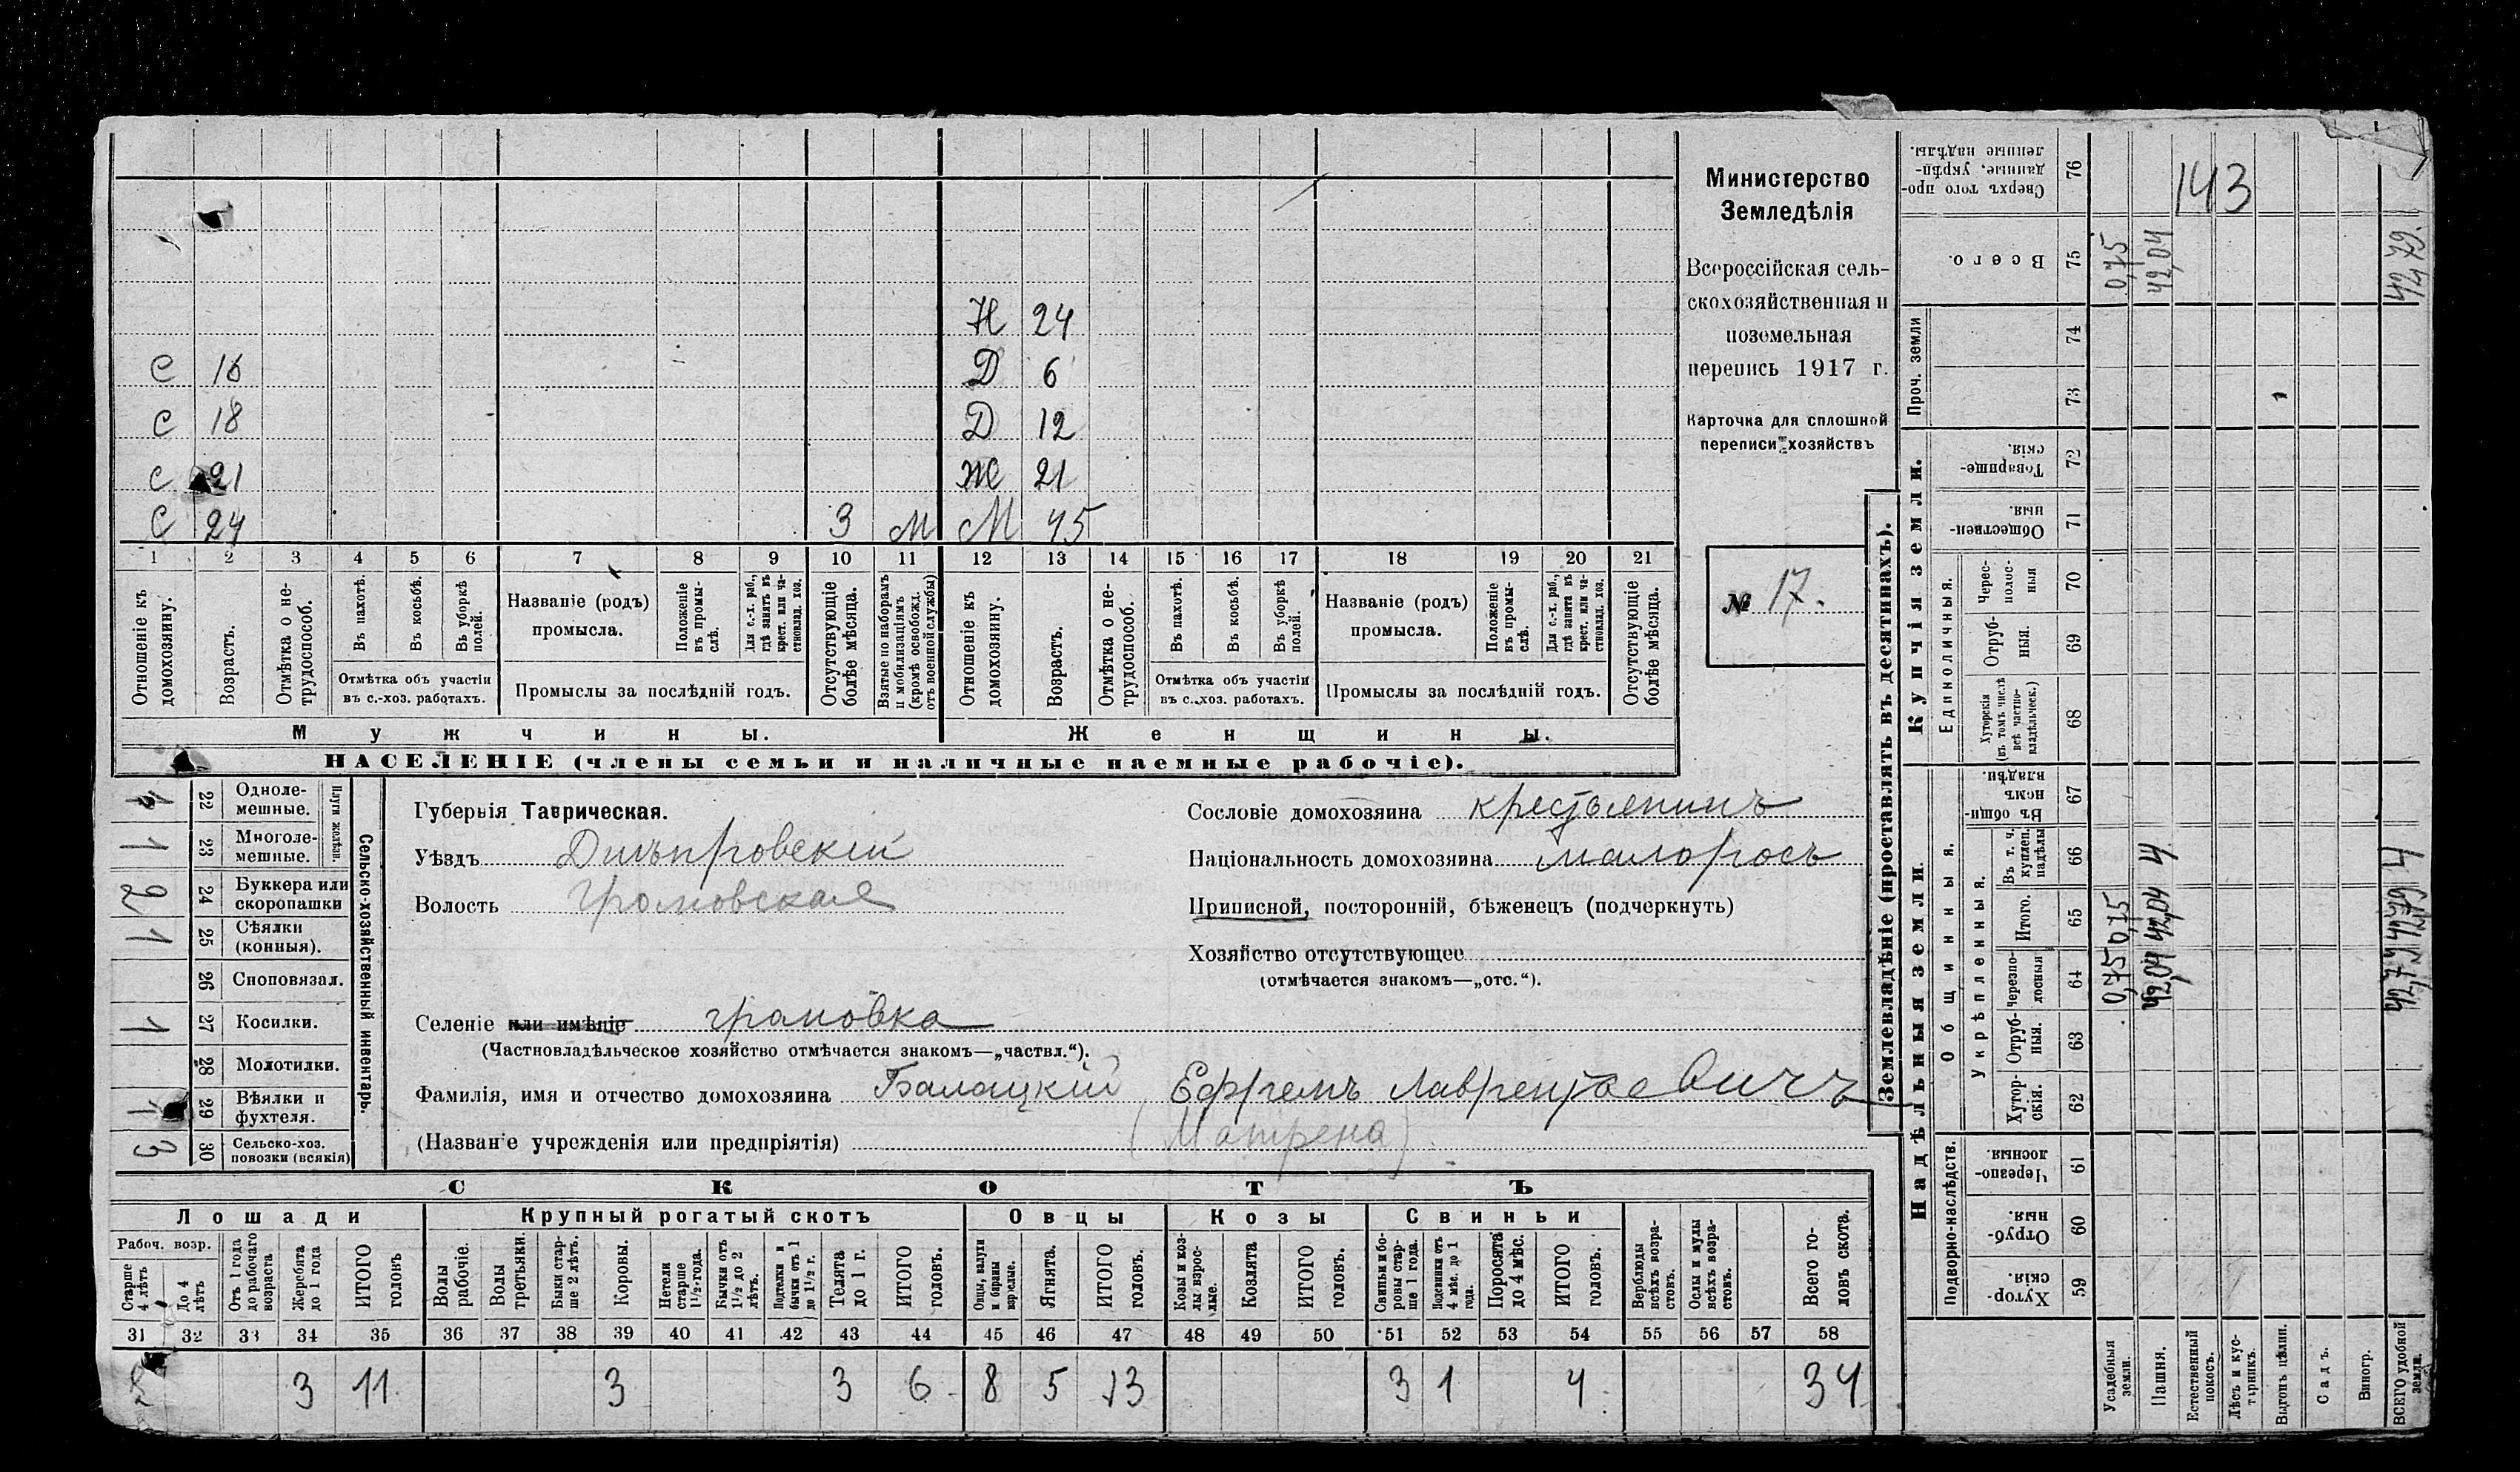 Министерство
Земледѣлія
Всероссійская сель-
скохозяйственная и
поземельная
перепись 1917 г.
Карточка для сплошной
переписи хозяйствъ
№ 17.
143
Н 24
С 16 Д 6
С 18 Д 12
С 21 Ж 21
С 24 3 М М 45
1 2 3 4 5 6 7 8 9 10 11 12 13 14 15 16 17 18 19 20 21
Отношеніе къ домохозяину.
Возрастъ.
Отмѣтка о не-трудоспособ.
Въ пахотѣ.
Въ косьбѣ.
Въ уборкѣ полей.
Отмѣтка объ участіи
въ с.-хоз. работахъ.
Названіе (родъ)
промысла.
Положеніе въ промы-слѣ.
Для с.-х. раб., гдѣ занятъ въ крест. или ча-стновлад. хоз.
Промыслы за послѣдній годъ.
Отсутствующіе болѣе мѣсяца.
Взятые по наборамъ и мобилизаціямъ (кромѣ освобожд. отъ военной службы)
Отношеніе къ домохозяину.
Возрастъ.
Отмѣтка о не-трудоспособ.
Въ пахотѣ.
Въ косьбѣ.
Въ уборкѣ полей.
Отмѣтка объ участіи
въ с.-хоз. работахъ.
Названіе (родъ)
промысла.
Положеніе въ промы-слѣ.
Для с.-х. раб., гдѣ занята въ крест. или ча-стновлад. хоз.
Промыслы за послѣдній годъ.
Отсутствующіе болѣе мѣсяца.
Мужчины. Женщины.
НАСЕЛЕНІЕ (члены семьи и наличные наемные рабочіе).
Сельско-хозяйственный инвентарь.
Плуги желѣзн.
22 Одноле-мешные.
1 23 Многоле-мешные.
2 24 Буккера или скоропашки
1 25 Сѣялки (конныя).
26 Сноповязал.
1 27 Косилки.
28 Молотилки.
1 29 Вѣялки и фухтеля.
3 30 Сельско-хоз. повозки (всякія)
Губернія Таврическая.
Уѣздъ Днѣпровскій
Волость Громовская
Селеніе или имѣніе громовка
(Частновладѣльческое хозяйство отмѣчается знакомъ—„частвл.“).
Фамилія, имя и отчество домохозяина Балацкій Ефремъ Лаврентьевичъ
(Названіе учрежденія или предпріятія) (Матрена)
Сословіе домохозяина крестьянинъ
Національность домохозяина малоросъ
Приписной, посторонній, бѣженецъ (подчеркнуть)
Хозяйство отсутствующее
(отмѣчается знакомъ—„отс.“).
СКОТЪ
Лошади Крупный рогатый скотъ Овцы Козы Свиньи
Рабоч. возр.
Старше 4 лѣтъ
До 4 лѣтъ
Отъ 1 года до рабочаго возраста
Жеребята до 1 года
ИТОГО головъ
Волы рабочіе.
Волы третьяки.
Быки стар-ше 2 лѣтъ.
Коровы.
Нетели старше 1½-года.
Бычки отъ 1½ до 2 лѣтъ.
Подтелки и бычки отъ 1 до 1½ г.
Телята до 1 г.
ИТОГО головъ.
Овцы, валухи и бараны взрослые.
Ягнята.
ИТОГО головъ.
Козы и коз-лы взрос-лые.
Козлята
ИТОГО головъ.
Свиньи и бо-ровы стар-ше 1 года.
Подсвинки отъ 4 мѣс. до 1 года.
Поросята до 4 мѣс.
ИТОГО головъ.
Верблюды всѣхъ возра-стовъ.
Ослы и мулы всѣхъ возра-стовъ.
Всего го-ловъ скота.
31 32 33 34 35 36 37 38 39 40 41 42 43 44 45 46 47 48 49 50 51 52 53 54 55 56 57 58
8 3 11 3 3 6 8 5 13 3 1 4 34
Землевладѣніе (проставлять въ десятинахъ).
Надѣльныя земли. Купчія земли. Проч. земли
Подворно-наслѣдств.
Общинныя.
Укрѣпленныя.
Единоличныя.
59 Хутор-скія.
60 Отруб-ныя.
61 Черезпо-лосныя.
62 Хутор-скія.
63 Отруб-ныя.
64 Черезпо-лосныя
65 Итого.
66 Въ т. ч. куплен. надѣлы
67 Въ общи-номъ владѣн.
68 Хуторскія (въ томъ числѣ всѣ частно-владѣльческ.)
69 Отруб-ныя.
70 Черес-полос-ныя
71 Обществен-ныя.
72 Товарище-скія.
73
74
75 Всего.
76 Сверхъ того про-данные, укрѣп-ленные надѣлы.
Усадебныя земли. 0,75 0,75 0,75
Пашня. 42,04 42,04 4 42,04
Естественный покосъ.
Лѣсъ и кус-тарникъ.
Выгонъ цѣлин.
Садъ.
Виногр.
ВСЕГО удобной земли. 42,79 42,79 4 42,79.